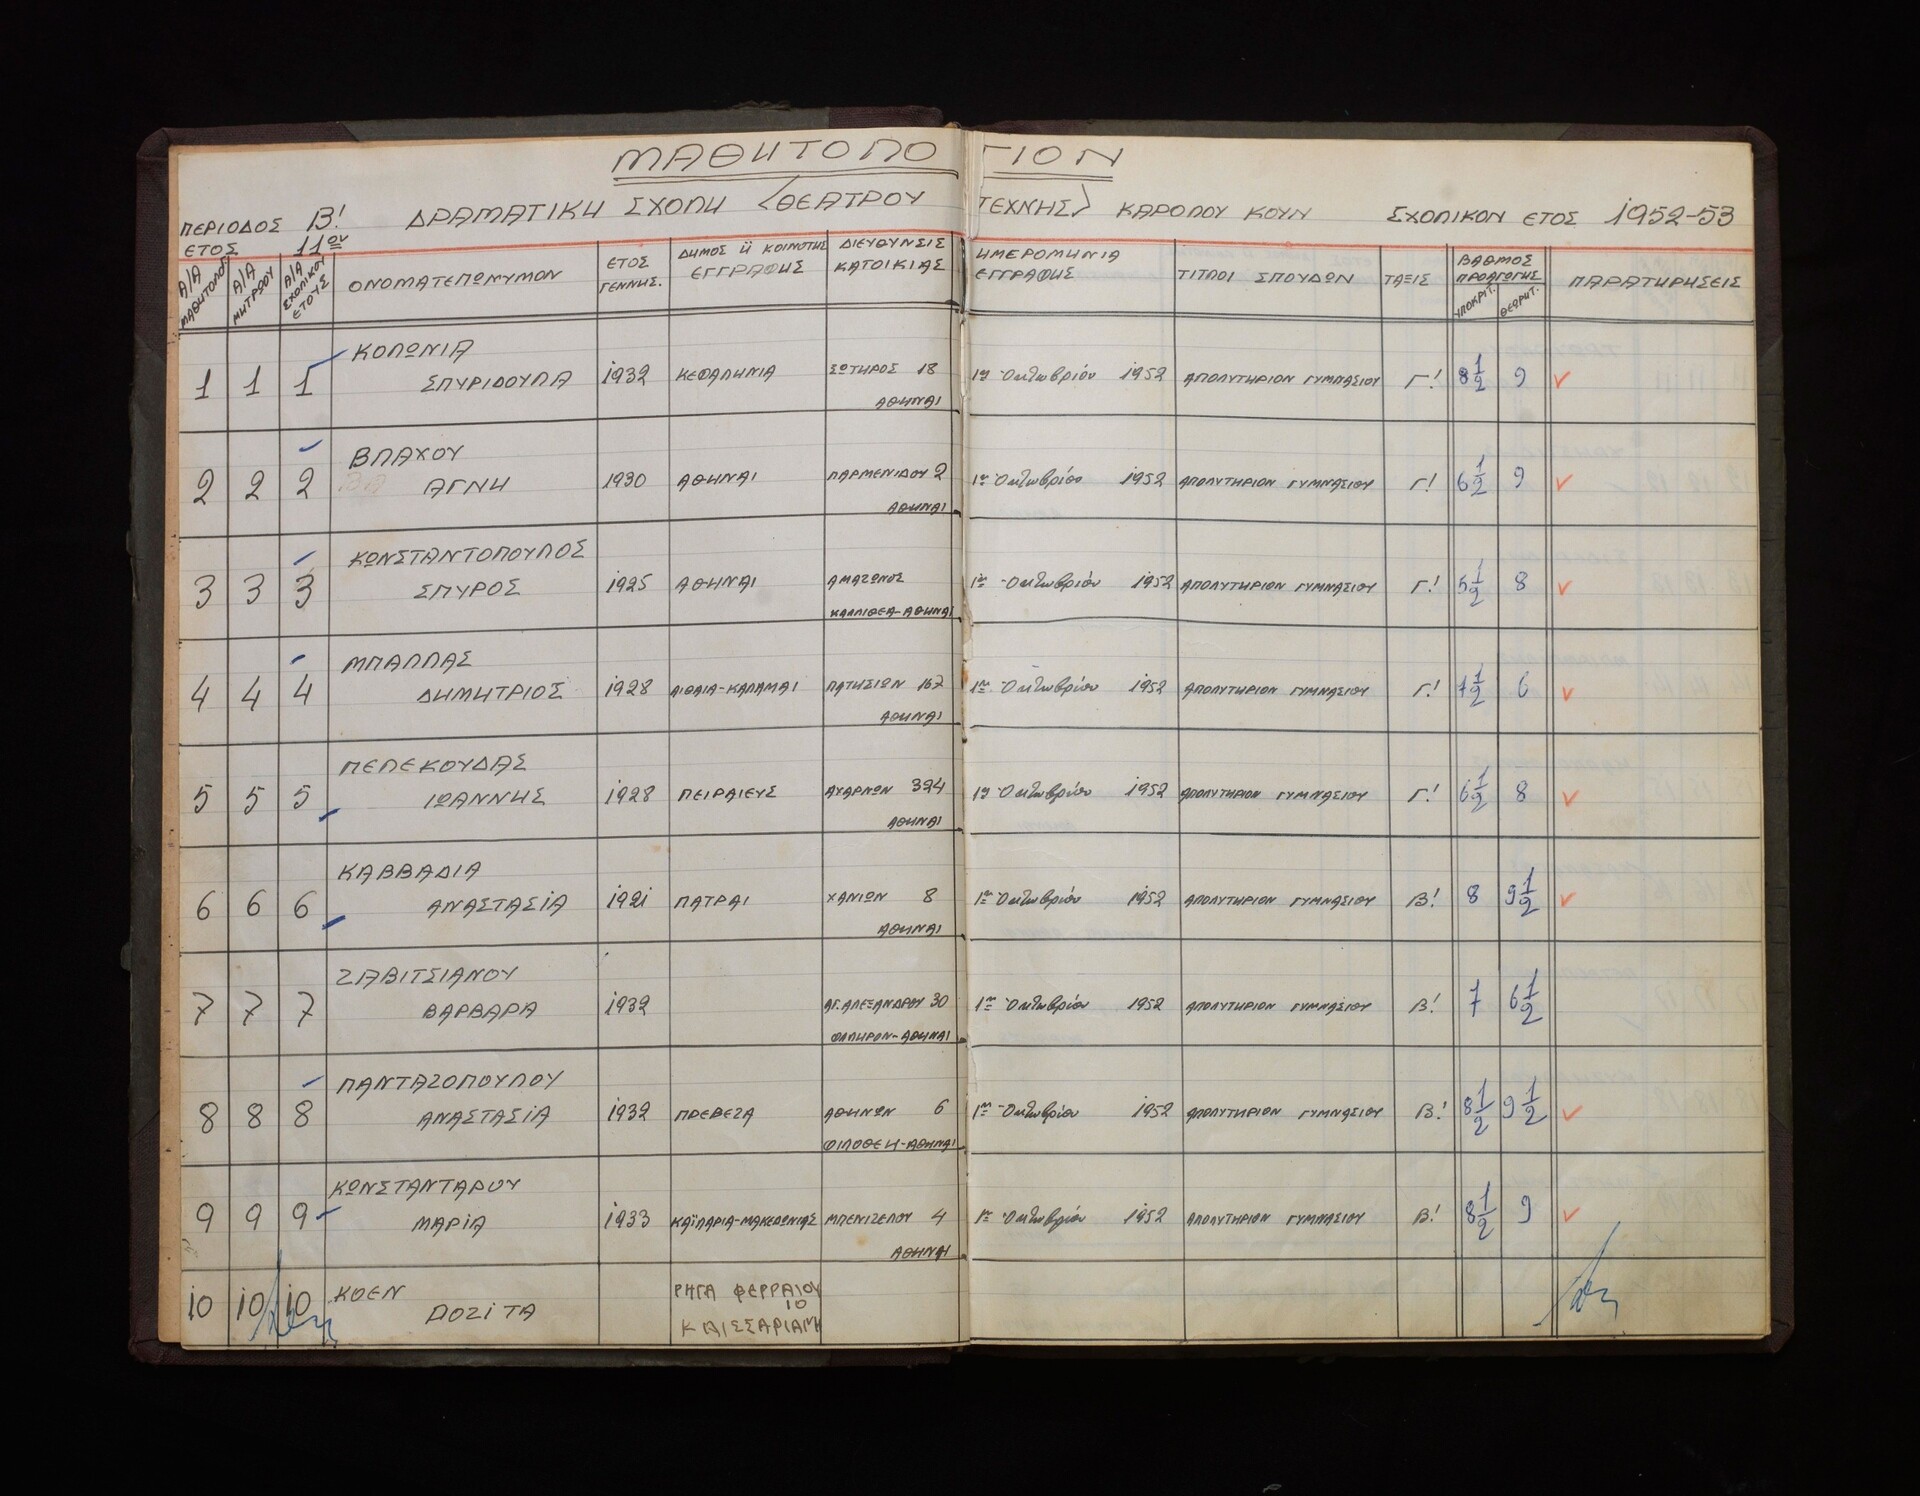 ΜΑΘΗΤΟΛΟΓΙΟΝ
ΠΕΡΙΟΔΟΣ Β! ΔΡΑΜΑΤΙΚΗ ΣΧΟΛΗ <ΘΕΑΤΡΟΥ ΤΕΧΝΗΣ> ΚΑΡΟΛΟΥ ΚΟΥΝ ΣΧΟΛΙΚΟΝ ΕΤΟΣ 1952-53
ΕΤΟΣ 11ον
Α/Α ΜΑΘΗΤΟΛΟΓ. Α/Α ΜΗΤΡΩΟΥ Α/Α ΣΧΟΛΙΚΟΥ ΕΤΟΥΣ ΟΝΟΜΑΤΕΠΩΝΥΜΟΝ ΕΤΟΣ ΓΕΝΝΗΣ. ΔΗΜΟΣ Ή ΚΟΙΝΟΤΗΣ ΕΓΓΡΑΦΗΣ ΔΙΕΥΘΥΝΣΙΣ ΚΑΤΟΙΚΙΑΣ ΗΜΕΡΟΜΗΝΙΑ ΕΓΓΡΑΦΗΣ ΤΙΤΛΟΙ ΣΠΟΥΔΩΝ ΤΑΞΙΣ ΒΑΘΜΟΣ ΠΡΟΑΓΩΓΗΣ ΥΠΟΚΡΙΤ. ΘΕΩΡΗΤ. ΠΑΡΑΤΗΡΗΣΕΙΣ
ΚΟΛΩΝΙΑ
1 1 1 ΣΠΥΡΙΔΟΥΛΑ 1932 ΚΕΦΑΛΗΝΙΑ ΣΩΤΗΡΟΣ 18 1η Οκτωβρίου 1952 ΑΠΟΛΥΤΗΡΙΟΝ ΓΥΜΝΑΣΙΟΥ Γ! 8 1/2 9 ✓
ΑΘΗΝΑΙ
ΒΛΑΧΟΥ
2 2 2 ΑΓΝΗ 1930 ΑΘΗΝΑΙ ΠΑΡΜΕΝΙΔΟΥ 2 1η Οκτωβρίου 1952 ΑΠΟΛΥΤΗΡΙΟΝ ΓΥΜΝΑΣΙΟΥ Γ! 6 1/2 9 ✓
ΑΘΗΝΑΙ
ΚΩΝΣΤΑΝΤΟΠΟΥΛΟΣ
3 3 3 ΣΠΥΡΟΣ 1925 ΑΘΗΝΑΙ ΑΜΑΖΩΝΟΣ 1η Οκτωβρίου 1952 ΑΠΟΛΥΤΗΡΙΟΝ ΓΥΜΝΑΣΙΟΥ Γ! 5 1/2 8 ✓
ΚΑΛΛΙΘΕΑ-ΑΘΗΝΑΙ
ΜΠΑΛΛΑΣ
4 4 4 ΔΗΜΗΤΡΙΟΣ 1928 ΚΑΛΑΜΑΙ ΠΑΤΗΣΙΩΝ 167 1η Οκτωβρίου 1952 ΑΠΟΛΥΤΗΡΙΟΝ ΓΥΜΝΑΣΙΟΥ Γ! 7 1/2 6 ✓
ΑΘΗΝΑΙ
ΠΕΛΕΚΟΥΔΑΣ
5 5 5 ΙΩΑΝΝΗΣ 1928 ΠΕΙΡΑΙΕΥΣ ΑΧΑΡΝΩΝ 324 1η Οκτωβρίου 1952 ΑΠΟΛΥΤΗΡΙΟΝ ΓΥΜΝΑΣΙΟΥ Γ! 6 1/2 8 ✓
ΑΘΗΝΑΙ
ΚΑΒΒΑΔΙΑ
6 6 6 ΑΝΑΣΤΑΣΙΑ 1921 ΠΑΤΡΑΙ ΧΑΝΙΩΝ 8 1η Οκτωβρίου 1952 ΑΠΟΛΥΤΗΡΙΟΝ ΓΥΜΝΑΣΙΟΥ Β! 8 9 1/2 ✓
ΑΘΗΝΑΙ
ΖΑΒΙΤΣΙΑΝΟΥ
7 7 7 ΒΑΡΒΑΡΑ 1932 ΑΓ.ΑΛΕΞΑΝΔΡΟΥ 30 1η Οκτωβρίου 1952 ΑΠΟΛΥΤΗΡΙΟΝ ΓΥΜΝΑΣΙΟΥ Β! 7 6 1/2
ΦΑΛΗΡΟΝ-ΑΘΗΝΑΙ
ΠΑΝΤΑΖΟΠΟΥΛΟΥ
8 8 8 ΑΝΑΣΤΑΣΙΑ 1932 ΠΡΕΒΕΖΑ ΑΘΗΝΩΝ 6 1η Οκτωβρίου 1952 ΑΠΟΛΥΤΗΡΙΟΝ ΓΥΜΝΑΣΙΟΥ Β! 8 1/2 9 1/2 ✓
ΦΙΛΟΘΕΗ-ΑΘΗΝΑΙ
ΚΩΝΣΤΑΝΤΑΡΟΥ
9 9 9 ΜΑΡΙΑ 1933 ΚΑΪΛΑΡΙΑ-ΜΑΚΕΔΩΝΙΑΣ ΜΠΕΝΙΖΕΛΟΥ 4 1η Οκτωβρίου 1952 ΑΠΟΛΥΤΗΡΙΟΝ ΓΥΜΝΑΣΙΟΥ Β! 8 1/2 9 ✓
ΑΘΗΝΑΙ
ΚΟΕΝ ΡΗΓΑ ΦΕΡΡΑΙΟΥ
10 10 10 ΛΟΖΙΤΑ 10
ΚΑΙΣΣΑΡΙΑΝΗ